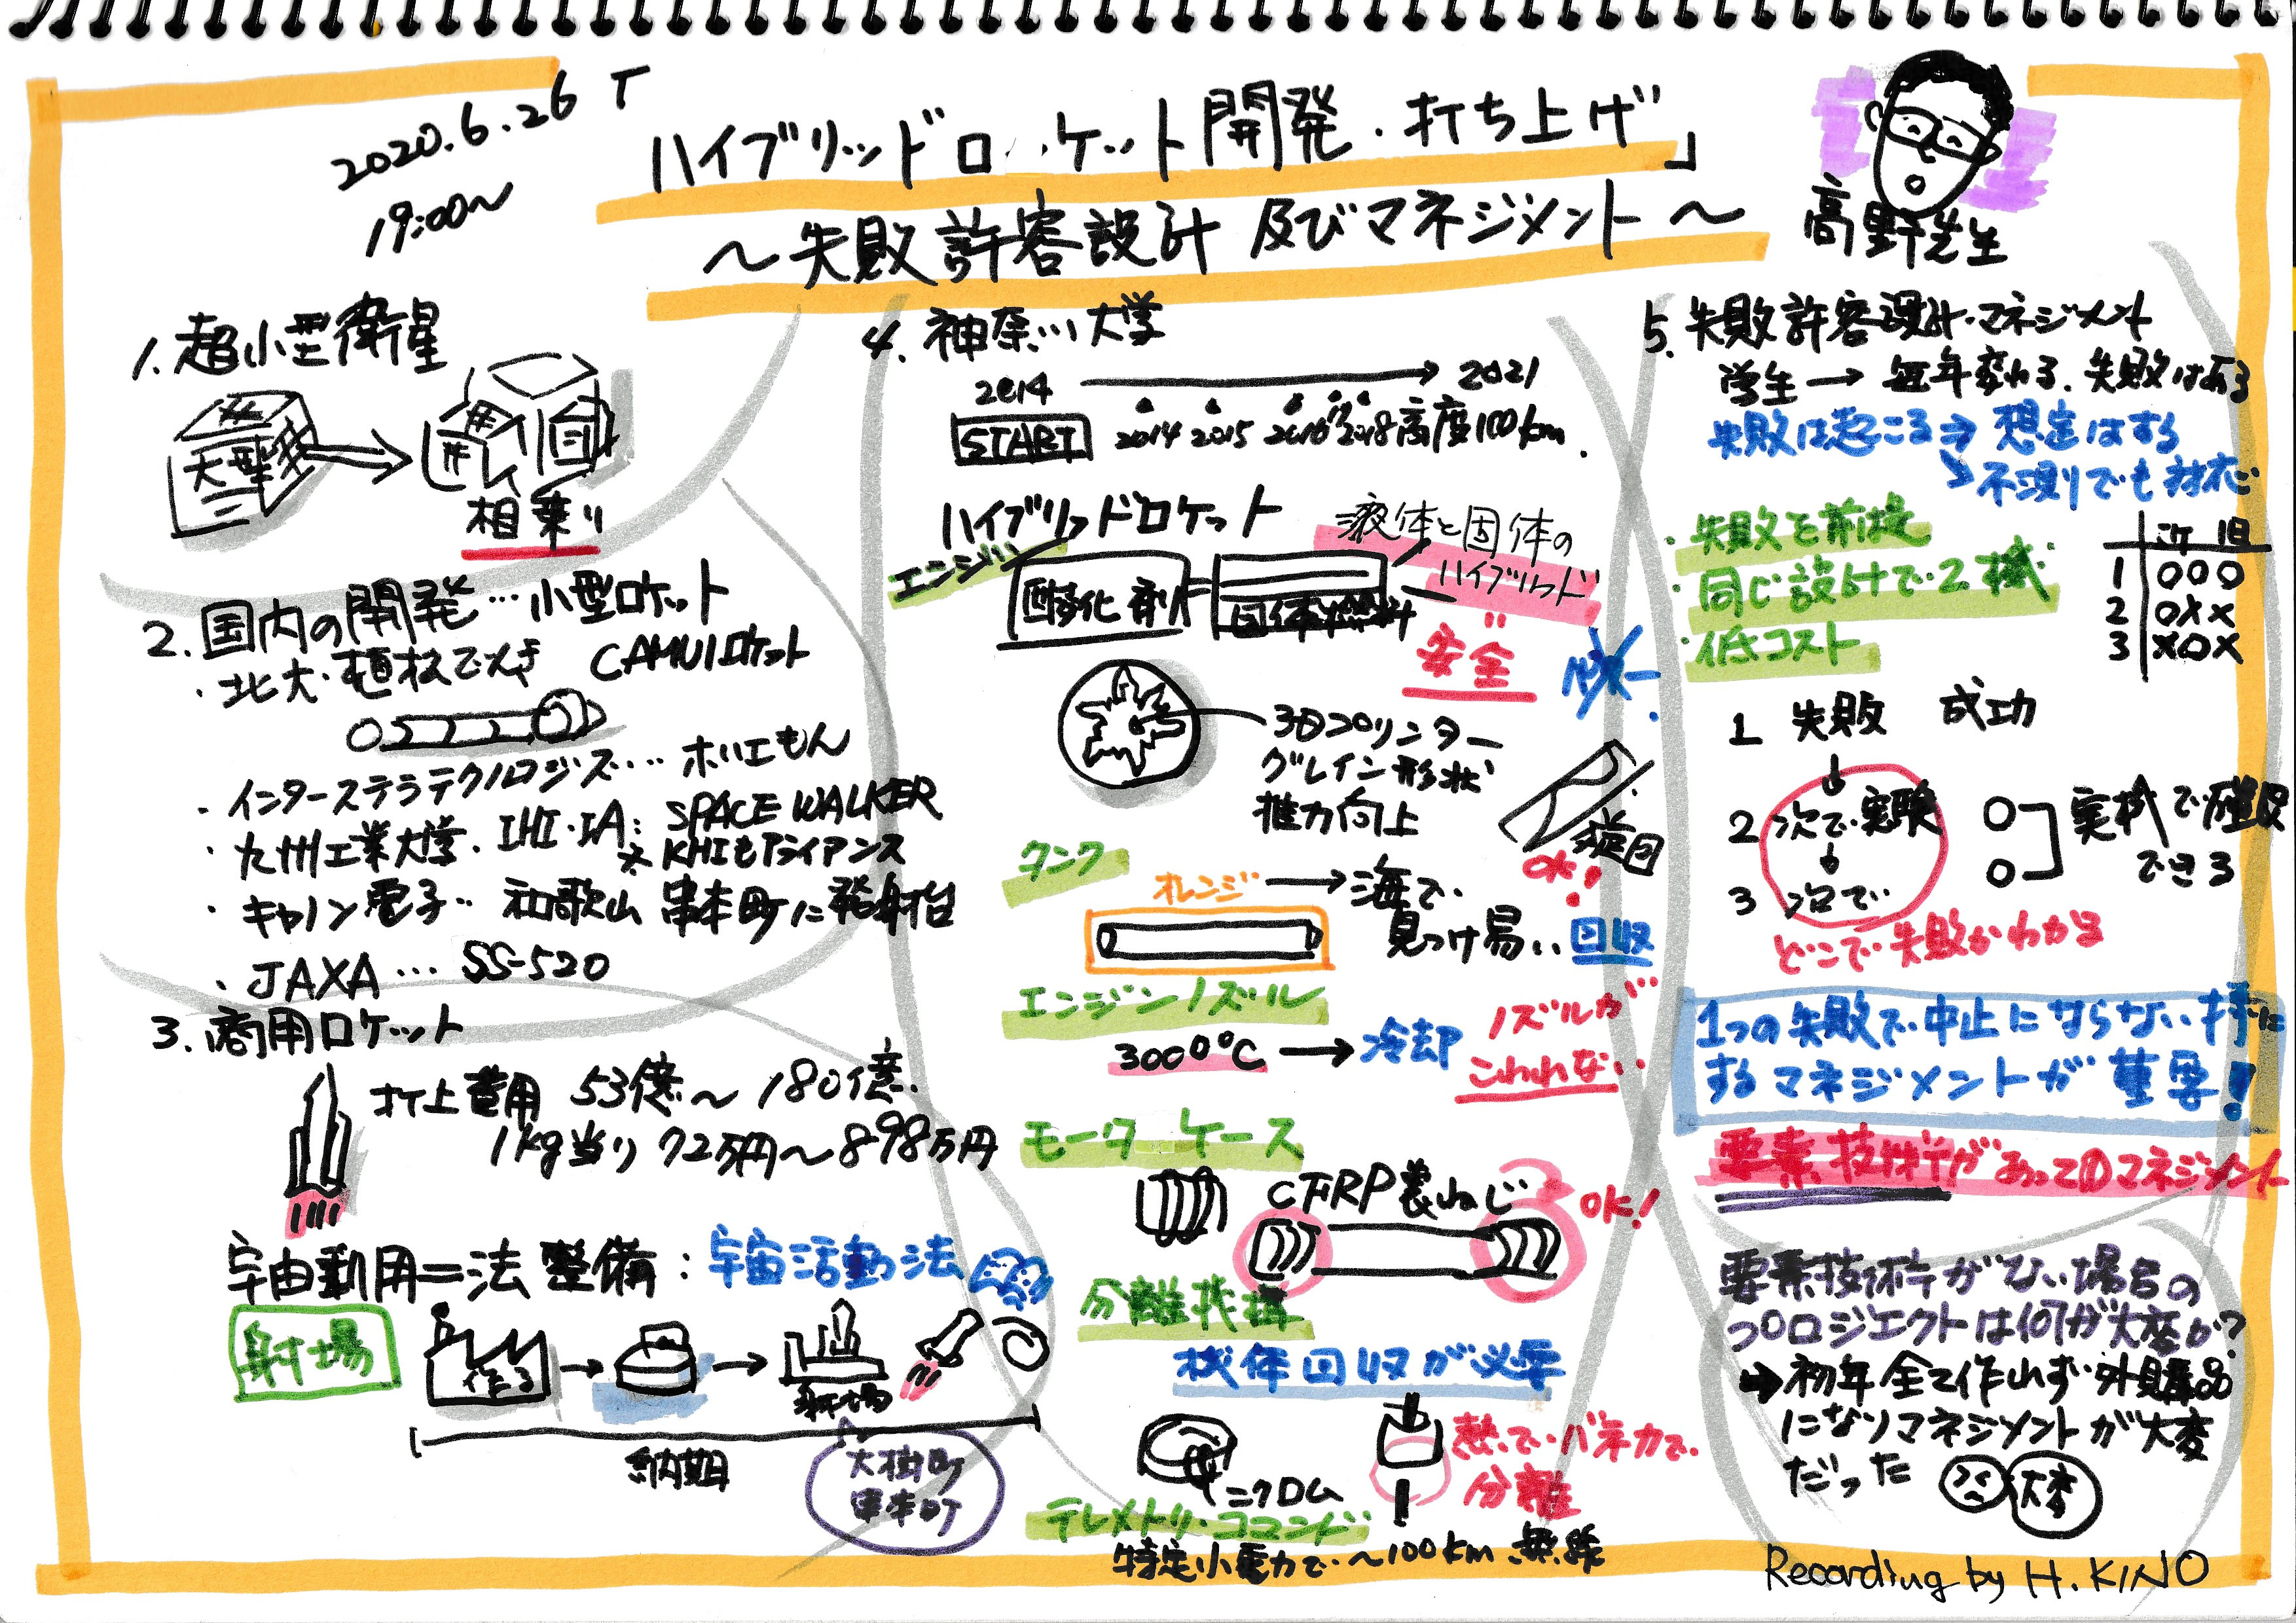 2020.6.26
19:00〜
ハイブリッドロケット開発・打ち上げ」
〜失敗許容設計及びマネジメント〜
高野先生
1. 超小型衛星
大型
相乗り
2. 国内の開発…小型ロケット
・北大・植松でんき CAMUIロケット
・インターステラテクノロジズ…ホリエもん
・九州工業大学・IHI・IA: SPACE WALKER
KHIもアライアンス
・キャノン電子… 和歌山 串本町に発射台
・JAXA… SS-520
3. 商用ロケット
打上費用 53億〜180億
1kg当り 72万円〜898万円
宇宙動用=法整備: 宇宙活動法
射場
作る
射場
納期
大樹町
串本町
4. 神奈川大学
2014 2021
START
2014 2015 2016 2018 高度100km.
ハイブリッドロケット
液体と固体の
ハイブリッド
エンジン
酸化剤
固体燃料
安全
3Dプリンター
グレイン形状
推力向上
旋回
OK!
タンク
オレンジ
海で
見つけ易い 回収
エンジンノズル
3000℃
冷却
ノズルが
こわれない
モーターケース
CFRP 製ねじ
OK!
分離機構
機体回収が必要
ニクロム
熱で・バネ力で
分離
テレメトリ・コマンド
特定小電力で〜100km 無線
5. 失敗許容設計・マネジメント
学生→毎年変わる. 失敗はある
失敗は起こる→想定はする
不測でも対応
・失敗を前提
・同じ設計で2機
・低コスト
1 ○○○
2 ○××
3 ×○×
1 失敗 成功
2 次で実験
3 次で
○
○
実機で確認
できる
どこで失敗かわかる
1つの失敗で中止にならない様に
するマネジメントが重要!
要素技術があってのマネジメント
要素技術がない場合の
プロジェクトは何が大変か?
→初年全て作れず・外購品
になりマネジメントが大変
だった
大変
Recording by H.KINO